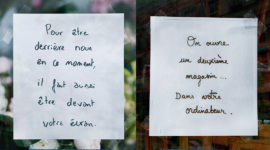 Pour être
derrière nous
en ce moment,
il faut aussi
être devant
votre écran.
On ouvre
un deuxième
magasin...
Dans votre
ordinateur.